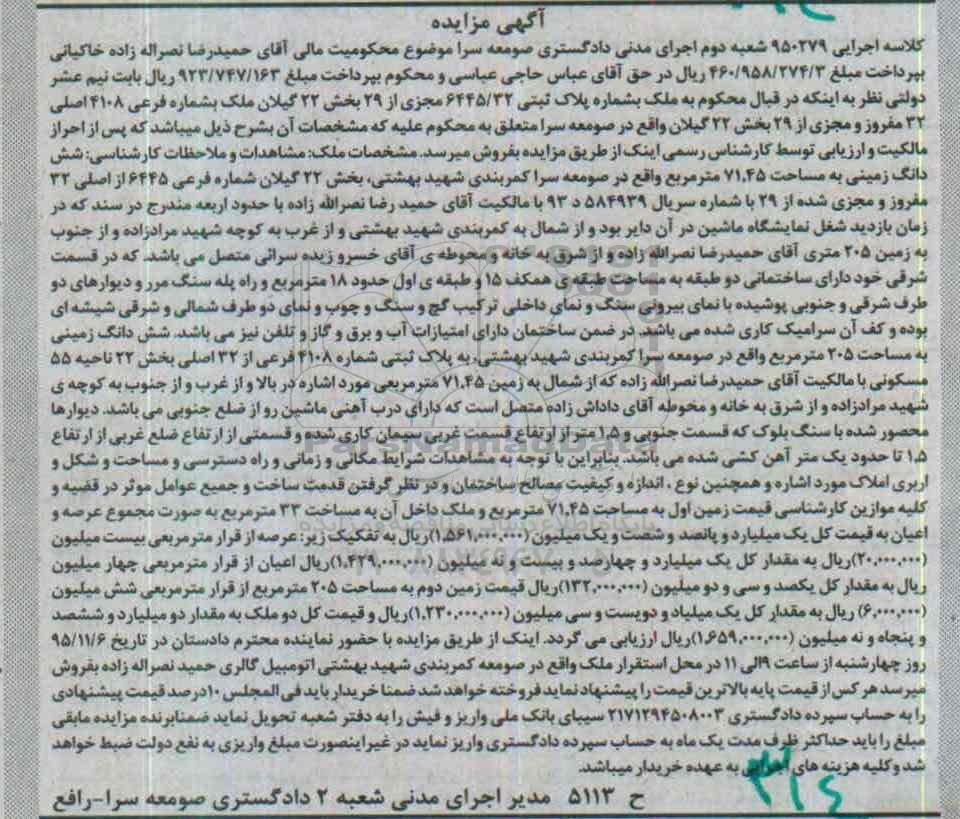 آگهی مزایده
کلاسه اجرایی ۹۵۰۲۷۹ شعبه دوم اجرای مدنی دادگستری صومعه سرا موضوع محکومیت مالی آقای حمیدرضا نصراله زاده خاکیانی
بپرداخت مبلغ ۴۶۰/۹۵۸/۲۷۴/۳ ریال در حق آقای عباس حاجی عباسی و محکوم بپرداخت مبلغ ۹۲۳/۷۴۷/۱۶۳ ریال بابت نیم عشر
دولتی نظر به اینکه در قبال محکوم به ملک بشماره پلاک ثبتی ۶۴۴۵/۳۲ مجزی از ۲۹ بخش ۲۲ گیلان ملک بشماره فرعی ۴۱۰۸ اصلی
۳۲ مفروز و مجزی از ۲۹ بخش ۲۲ گیلان واقع در صومعه سرا متعلق به محکوم علیه که مشخصات آن بشرح ذیل میباشد که پس از احراز
مالکیت و ارزیابی توسط کارشناس رسمی اینک از طریق مزایده بفروش میرسد. مشخصات ملک: مشاهدات و ملاحظات کارشناسی: شش
دانگ زمینی به مساحت ۷۱،۴۵ مترمربع واقع در صومعه سرا کمربندی شهید بهشتی، بخش ۲۲ گیلان شماره فرعی ۶۴۴۵ از اصلی ۳۲
مفروز و مجزی شده از ۲۹ با شماره سریال ۵۸۴۹۳۹ د ۹۳ با مالکیت آقای حمید رضا نصرالله زاده با حدود اربعه مندرج در سند که در
زمان بازدید شغل نمایشگاه ماشین در آن دایر بود و از شمال به کمربندی شهید بهشتی و از غرب به کوچه شهید مرادزاده و از جنوب
به زمین ۲۰۵ متری آقای حمیدرضا نصرالله زاده و از شرق به خانه و محوطه ی آقای خسرو زیده سرائی متصل می باشد. که در قسمت
شرقی خود دارای ساختمانی دو طبقه به مساحت طبقه ی همکف ۱۵ و طبقه ی اول حدود ۱۸ مترمربع و راه پله سنگ مرر و دیوارهای دو
طرف شرقی و جنوبی پوشیده با نمای بیرونی سنگ و نمای داخلی ترکیب گچ و سنگ و چوب و نمای دو طرف شمالی و شرقی شیشه ای
بوده و کف آن سرامیک کاری شده می باشد. در ضمن ساختمان دارای امتیازات آب و برق و گاز و تلفن نیز می باشد. شش دانگ زمینی
به مساحت ۲۰۵ مترمربع واقع در صومعه سرا کمربندی شهید بهشتی، به پلاک ثبتی شماره ۴۱۰۸ فرعی از ۳۲ اصلی بخش ۲۲ ناحیه ۵۵
مسکونی با مالکیت آقای حمیدرضا نصرالله زاده که از شمال به زمین ۷۱،۴۵ مترمربعی مورد اشاره در بالا و از غرب و از جنوب به کوچه ی
شهید مرادزاده و از شرق به خانه و محوطه آقای داداش زاده متصل است که دارای درب آهنی ماشین رو از ضلع جنوبی می باشد. دیوارها
محصور شده با سنگ بلوک که قسمت جنوبی و ۱،۵ متر از ارتفاع قسمت غربی سیمان کاری شده و قسمتی از ارتفاع ضلع غربی از ارتفاع
۱،۵ تا حدود یک متر آهن کشی شده می باشد. بنابراین با توجه به مشاهدات شرایط مکانی و زمانی و راه دسترسی و مساحت و شکل و
اربری املاک مورد اشاره و همچنین نوع ، اندازه و کیفیت مصالح ساختمان و در نظر گرفتن قدمت ساخت و جمیع عوامل موثر در قضیه و
کلیه موازین کارشناسی قیمت زمین اول به مساحت ۷۱،۴۵ مترمربع و ملک داخل آن به مساحت ۳۳ مترمربع به صورت مجموع عرصه و
اعیان به قیمت کل یک میلیارد و پانصد و شصت و یک میلیون (۱،۵۶۱،۰۰۰،۰۰۰)ریال به تفکیک زیر: عرصه از قرار مترمربعی بیست میلیون
(۲۰،۰۰۰،۰۰۰)ریال به مقدار کل یک میلیارد و چهارصد و بیست و نه میلیون (۱،۴۲۹،۰۰۰،۰۰۰)ریال اعیان از قرار مترمربعی چهار میلیون
ریال به مقدار کل یکصد و سی و دو میلیون (۱۳۲،۰۰۰،۰۰۰)ریال قیمت زمین دوم به مساحت ۲۰۵ مترمربع از قرار مترمربعی شش میلیون
(۶،۰۰۰،۰۰۰) ریال به مقدار کل یک میلیاد و دویست و سی میلیون (۱،۲۳۰،۰۰۰،۰۰۰)ریال و قیمت کل دو ملک به مقدار دو میلیارد و ششصد
و پنجاه و نه میلیون (۱،۶۵۹،۰۰۰،۰۰۰)ریال ارزیابی می گردد. اینک از طریق مزایده با حضور نماینده محترم دادستان در تاریخ ۹۵/۱۱/۶
روز چهارشنبه از ساعت ۹الی ۱۱ در محل استقرار ملک واقع در صومعه کمربندی شهید بهشتی اتومبیل گالری حمید نصراله زاده بفروش
میرسد هر کس از قیمت پایه بالاترین قیمت را پیشنهاد نماید فروخته خواهد شد ضمنا خریدار باید فی المجلس ۱۰درصد قیمت پیشنهادی
را به حساب سپرده دادگستری ۲۱۷۱۲۹۴۵۰۸۰۰۳ سیبای بانک ملی واریز و فیش را به دفتر شعبه تحویل نماید ضمنابرنده مزایده مابقی
مبلغ را باید حداکثر ظرف مدت یک ماه به حساب سپرده دادگستری واریز نماید در غیر اینصورت مبلغ واریزی به نفع دولت ضبط خواهد
شد وکلیه هزینه های اجرایی به عهده خریدار میباشد.
ح ۵۱۱۳ مدیر اجرای مدنی شعبه ۲ دادگستری صومعه سرا-رافع